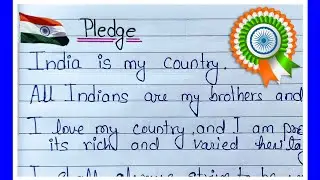 Pledge
India is my country.
All Indians are my brothers and
I love my country, and I am
its rich and varied
I shall always